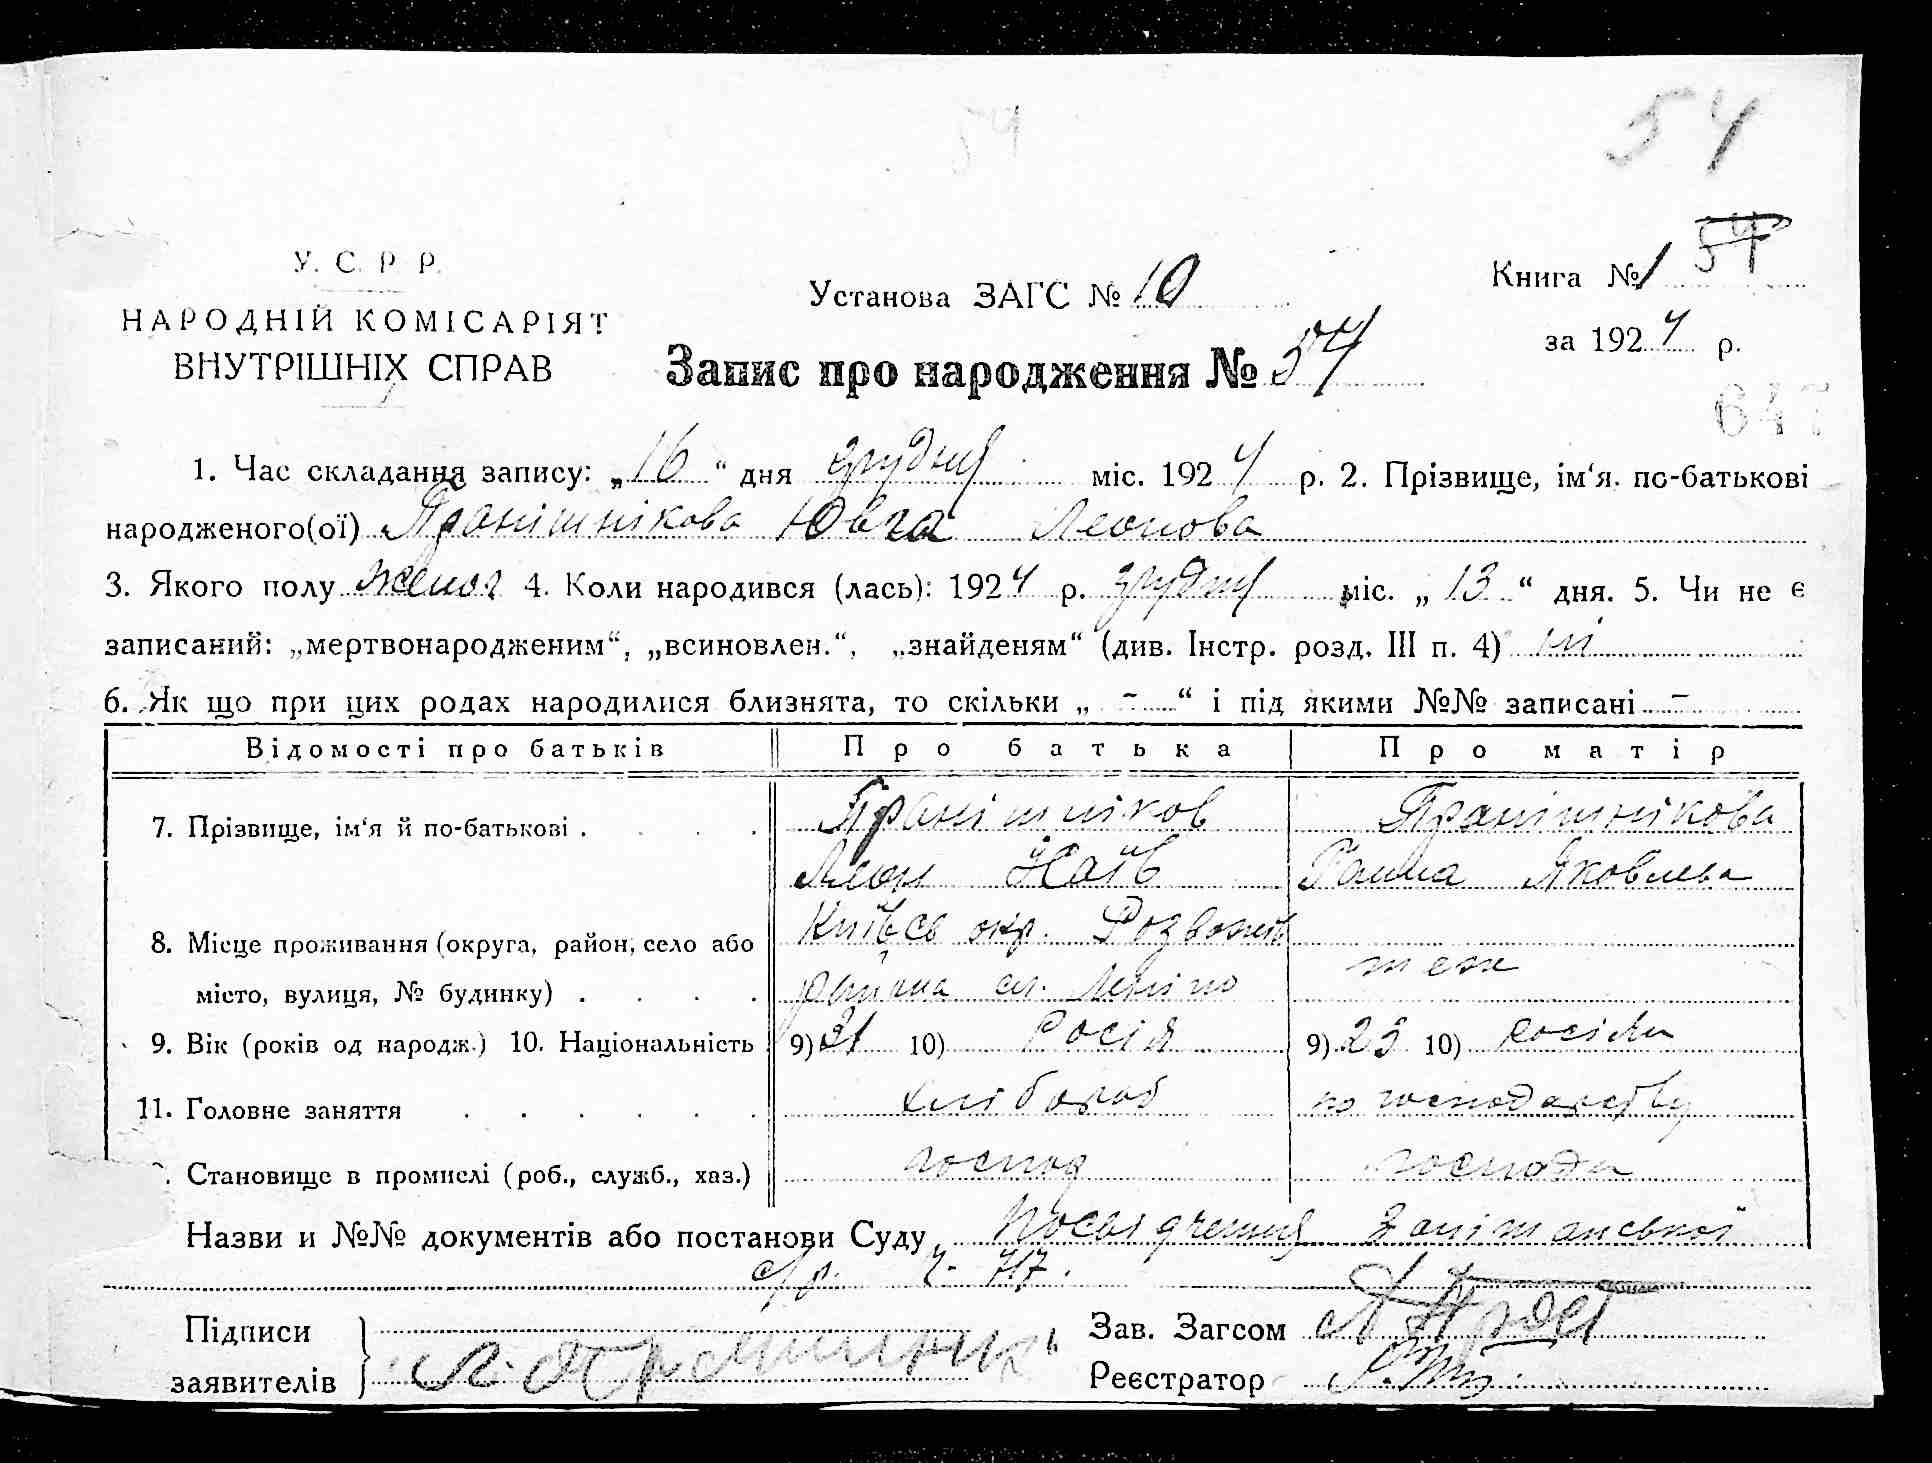 54
54
У. С. Р Р.
НАРОДНІЙ КОМІСАРІЯТ
ВНУТРІШНІХ СПРАВ
Установа ЗАГС № 10
Книга № 1 54
за 1924 р.
Запис про народження № 54
647
1. Час складання запису: „16“ дня грудня міс. 1924 р. 2. Прізвище, ім‘я. по-батькові
народженого(ої) Пранішнікова Ювга Леонова
3. Якого полу жіноч 4. Коли народився (лась): 1924 р. грудня міс. „13“ дня. 5. Чи не є
записаний: „мертвонародженим“, „всиновлен.“, „знайденям“ (див. Інстр. розд. III п. 4) ні
6. Як що при цих родах народилися близнята, то скільки „ - “ і під якими №№ записані -
Відомості про батьків Про батька Про матір
7. Прізвище, ім‘я й по-батькові . . . . Пранішніков Пранішнікова
Леон Ганна Яковлева
8. Місце проживання (округа, район, село або Київсь окр. Розважів
місто, вулиця, № будинку) . . . . района теж
9. Вік (років од народж.) 10. Національність 9) 31 10) Росія 9) 23 10)
11. Головне заняття . . . . . . хлібороб по господарству
. Становище в промислі (роб., служб., хаз.) господ господи
Назви и №№ документів або постанови Суду Посвідчення
с/р. ч. 717.
Підписи
заявителів
Зав. Загсом
Реєстратор